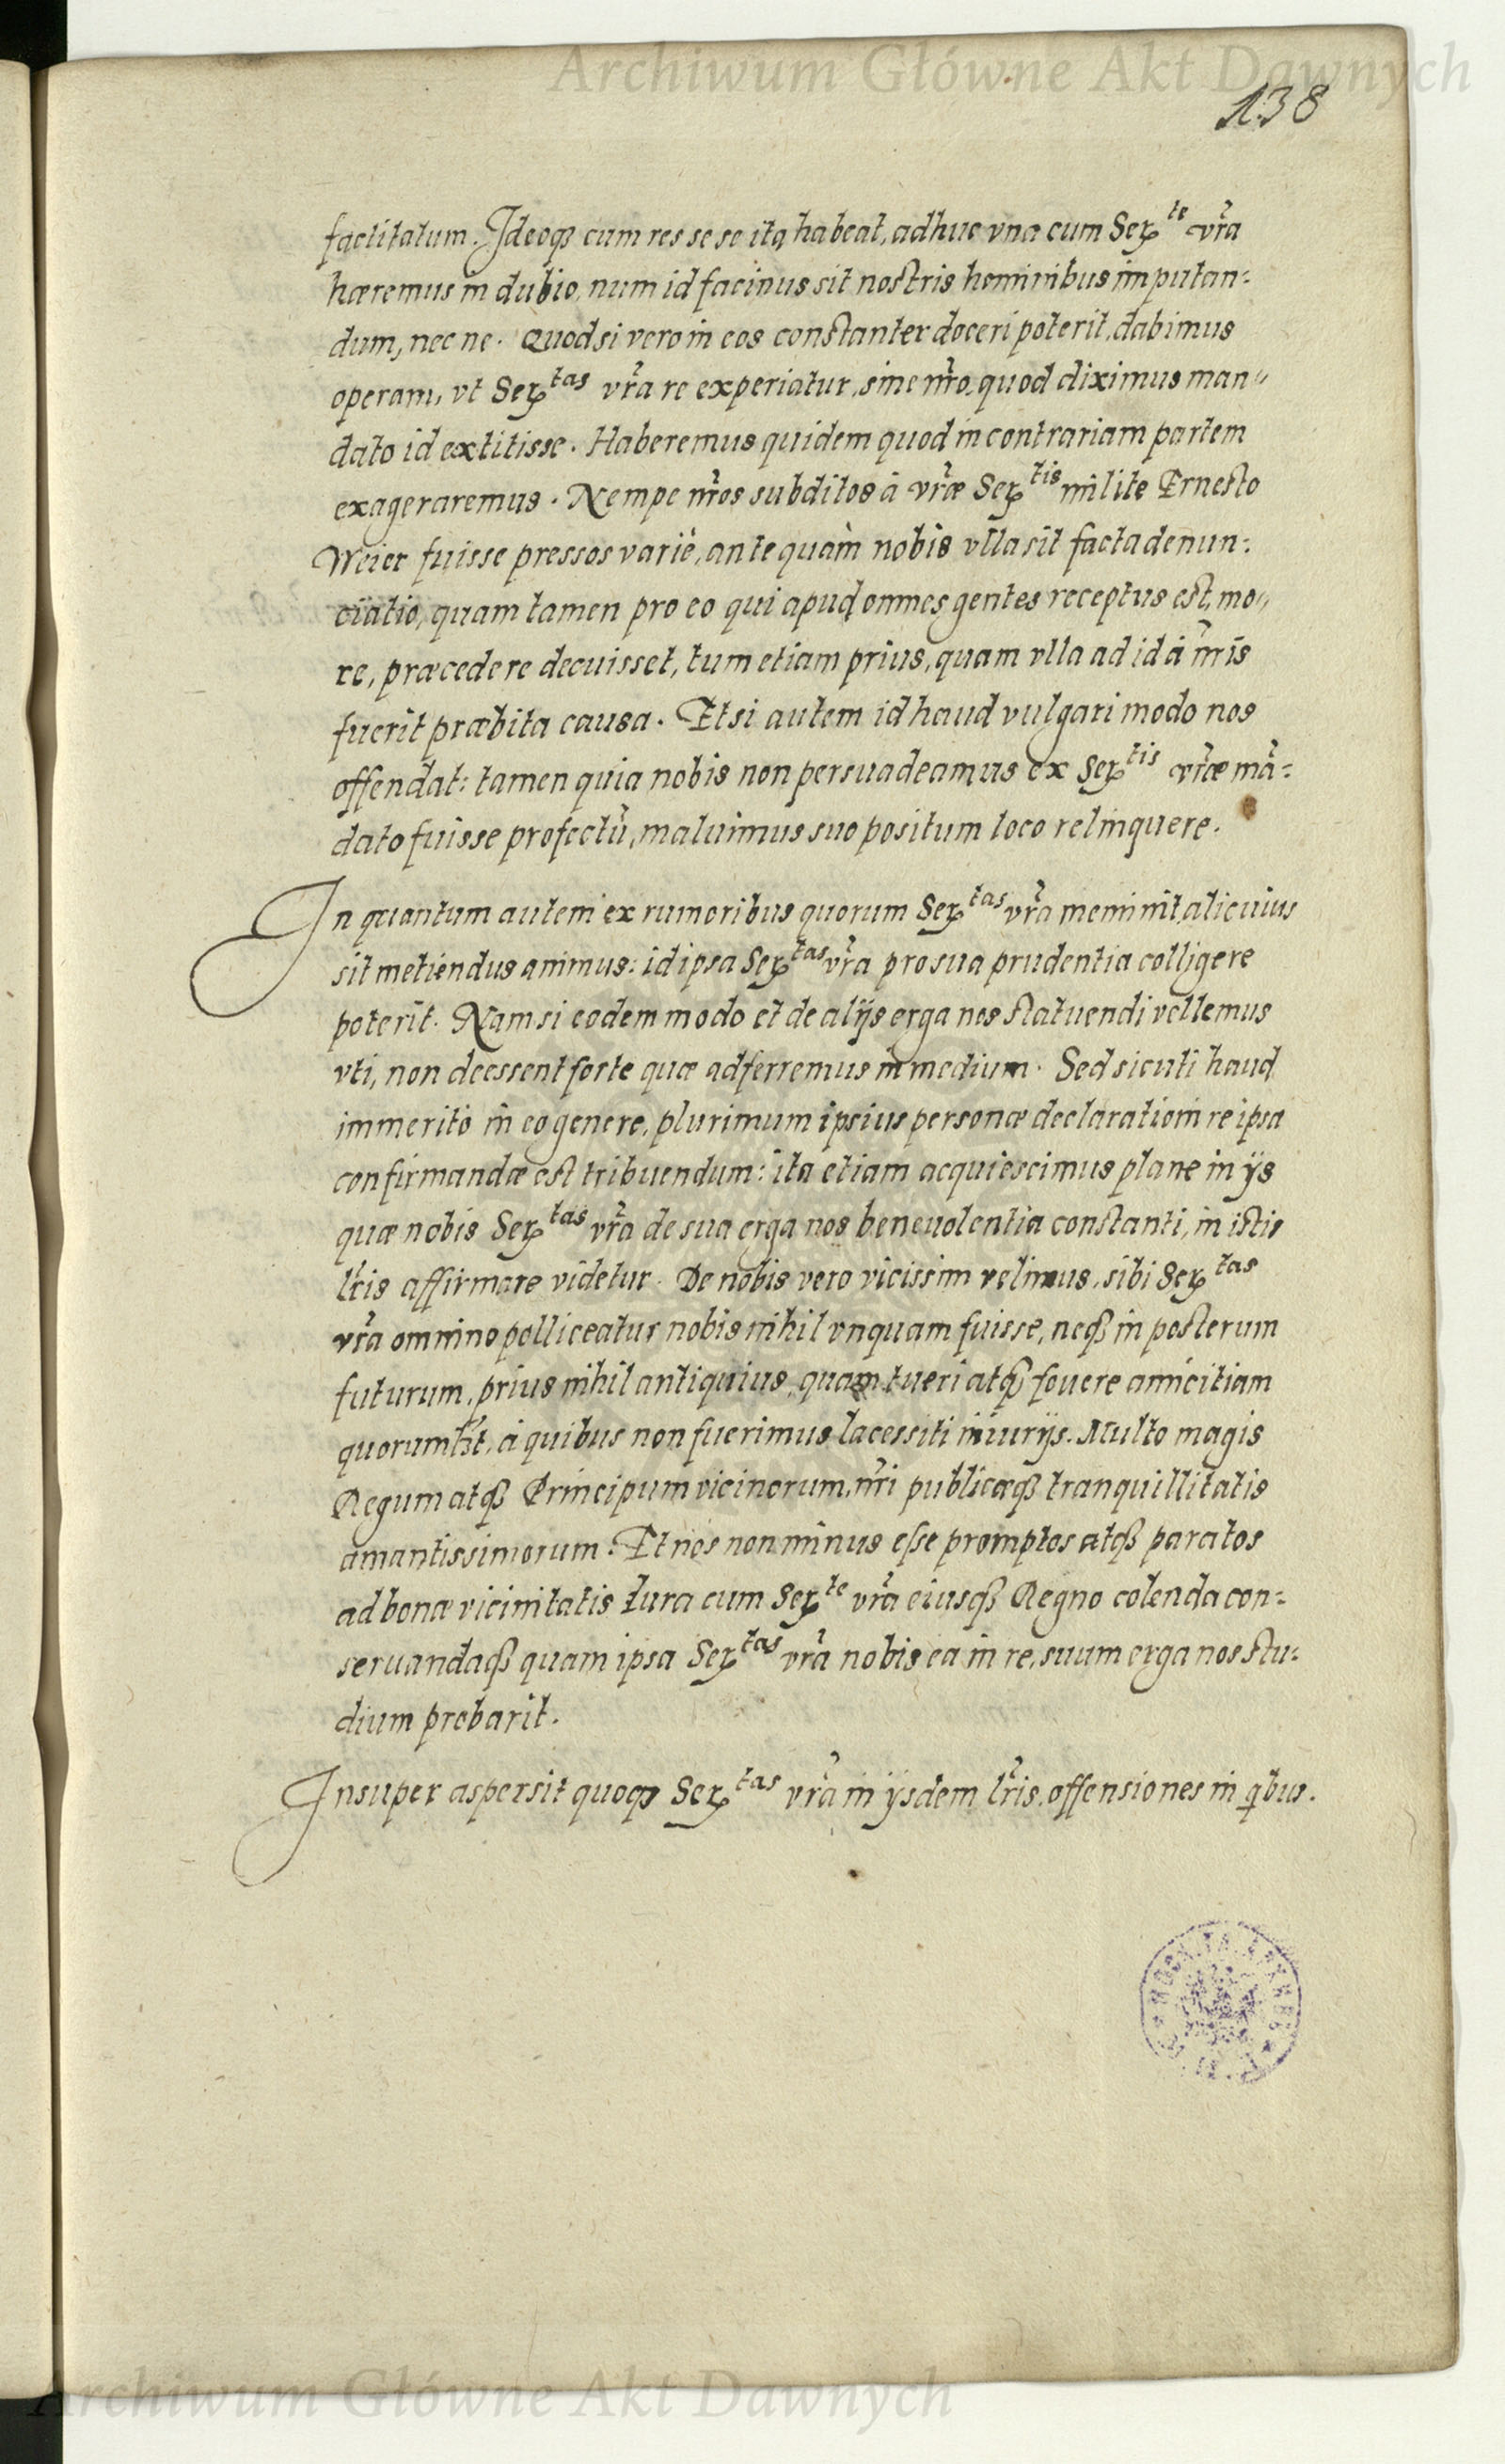 Archiwum Główne Akt Dawnych
138
factitatum. Ideoqȝ cum res se se ita habeat, adhuc vna cum Ser^te vr̃a
hæremus in dubio, num id facinus sit nostris hominibus imputan:
dum, nec ne. Quod si vero in eos constanter doceri poterit, dabimus
operam, vt Ser^tas vr̃a re experiatur, sine nr̃o, quod diximus man〃
dato id extitisse. Haberemus quidem quod in contrariam partem
exageraremus. Nempe nr̃os subditos à vr̃æ Ser^tis milite Ernesto
Weier fuisse pressos varie, ante quàm nobis vlla sit facta denun:
ciatio, quam tamen pro eo qui apud omnes gentes receptus est, mo〃
re, præcedere decuisset, tum etiam prius, quam vlla ad id à nr̃is
fuerit præbita causa. Etsi autem id haud vulgari modo nos
offendat: tamen quia nobis non persuadeamus ex Ser^tis vr̃æ mã:
dato fuisse profectũ, maluimus suo positum loco relinquere.
In quantum autem ex rumoribus quorum Ser^tas vr̃a meminit, alicuius
sit metiendus animus: id ipsa Ser^tas vr̃a pro sua prudentia colligere
poterit. Nam si eodem modo et de alijs erga nos statuendi vellemus
vti, non deessent forte quæ adferremus in medium. Sed sicuti haud
immerito in eo genere, plurimum ipsius personæ declarationi re ipsa
confirmandæ est tribuendum: ita etiam acquiescimus plane in ijs
quæ nobis Ser^tas vr̃a de sua erga nos beneuolentia constanti, in istis
lr̃is affirmare videtur. De nobis vero vicissim velimus, sibi Ser^tas
vr̃a omnino polliceatur nobis nihil vnquam fuisse, neqȝ in posterum
futurum, prius nihil antiquius, quam tueri atqȝ fouere amicitiam
quorumlȝt, à quibus non fuerimus lacessiti iniurijs. Multo magis
Regum atqȝ Principum vicinorum, nr̃i publicæqȝ tranquillitatis
amantissimorum. Et nos non minus esse promptos atqȝ paratos
ad bonæ vicinitatis Iura cum Ser^te vr̃a eiusqȝ Regno colenda con:
seruandaqȝ quam ipsa Ser^tas vr̃a nobis ea in re, suum erga nos stu:
dium probarit.
Insuper aspersit quoqȝ Ser^tas vr̃a in ijsdem lr̃is, offensiones in qĩbus.
Archiwum Główne Akt Dawnych